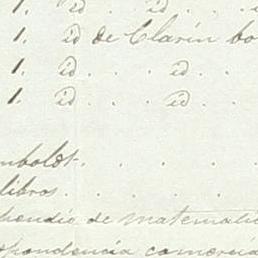 1. id . . . id . . .
1. id de Clarín bo
1. id . . . . id . .
1. id . . . id . .
mboldt. . . . .
libros. . . . .
pendio de matematic
spondencia comercia